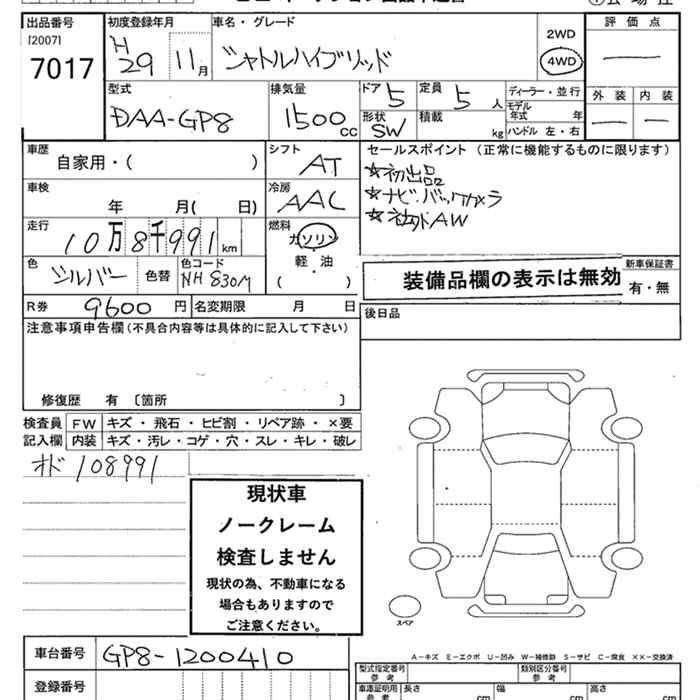 出品番号
[2007]
7017
初度登録年月
H
29 11月
車名・グレード
シャトルハイブリッド
2WD
4WD
評価点
型式
DAA-GP8
排気量
1500cc
ドア
5
定員
5人
ディーラー・並行
モデル年式 年
ハンドル 左・右
形状
SW
積載
kg
外装 内装
車歴
自家用・( )
シフト
AT
セールスポイント (正常に機能するものに限ります)
☆初出品
☆ナビ.バックカメラ
☆社外AW
車検
年 月( 日)
冷房
AAC
走行
10万8千991km
燃料
ガソリン
軽油
・
( )
色
シルバー
色替
色コード
NH830M
装備品欄の表示は無効
新車保証書
有・無
R券
9600円
名変期限 月 日
後日品
注意事項申告欄(不具合内容等は具体的に記入して下さい)
修復歴 有 〔箇所 〕
検査員 FW キズ・飛石・ヒビ割・リペア跡・×要
記入欄 内装 キズ・汚レ・コゲ・穴・スレ・キレ・破レ
オド 108991
現状車
ノークレーム
検査しません
現状の為、不動車になる
場合もありますので
ご注意ください。
スペア
車台番号
GP8-1200410
A-キズ E-エクボ U-凹み W-補修跡 S-サビ C-腐食 ××-交換済
型式指定番号
参考
類別区分番号
参考
登録番号
車庫証明用
参考
長さ cm
幅 cm
高さ cm